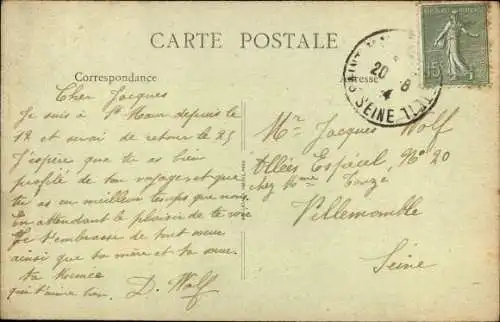 CARTE POSTALE
Correspondance
Adresse
SAINT-
20 8
SEINE
15
Cher Jacques
Je suis à St Maur depuis le
12 et serai de retour le 25
J'espère que tu as bien
profité de ton voyage, et que
tu as eu meilleur temps que nous
En attendant le plaisir de te voir
Je t'embrasse de tout cœur
ainsi que ta mère et ta sœur
ta
qui t'aime bien D. Wolf
Mr Jacques Wolf
Allées No 20
chez Mme
Villemomble
Seine